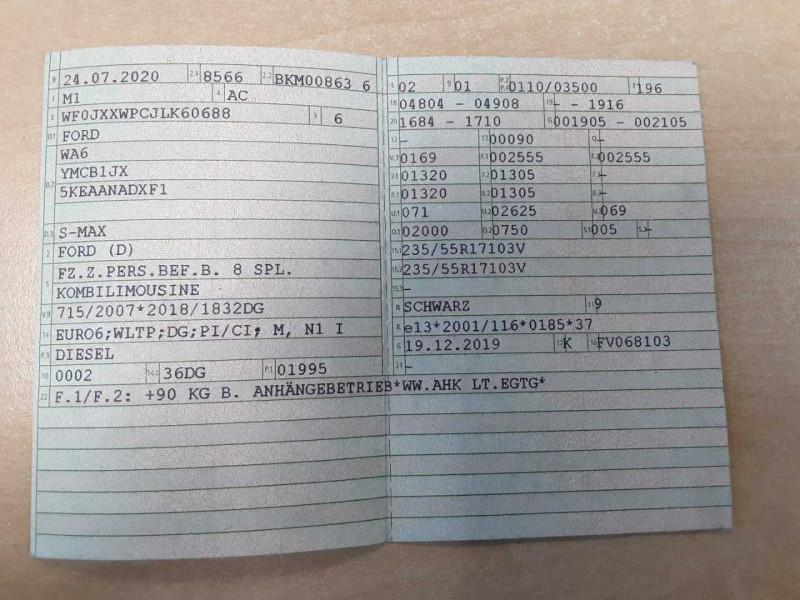 B 24.07.2020 2.1 8566 2.2 BKM00863 6
J M1 4 AC
E WF0JXXWPCJLK60688 3 6
D.1 FORD
WA6
D.2 YMCB1JX
5KEAANADXF1
D.3 S-MAX
2 FORD (D)
5 FZ.Z.PERS.BEF.B. 8 SPL.
KOMBILIMOUSINE
V.9 715/2007*2018/1832DG
14 EURO6;WLTP;DG;PI/CI; M, N1 I
P.3 DIESEL
10 0002 14.1 36DG P.1 01995
22 F.1/F.2: +90 KG B. ANHÄNGEBETRIEB*WW.AHK LT.EGTG*
L 02 9 01 P.2 P.4 0110/03500 T 196
18 04804 - 04908 19 - - 1916
20 1684 - 1710 G 001905 - 002105
12 - 13 00090 Q -
V.7 0169 F.1 002555 F.2 002555
7.1 01320 7.2 01305 7.3 -
8.1 01320 8.2 01305 8.3 -
U.1 071 U.2 02625 U.3 069
O.1 02000 O.2 0750 S.1 005 S.2 -
15.1 235/55R17103V
15.2 235/55R17103V
15.3 -
R SCHWARZ 11 9
K e13*2001/116*0185*37
6 19.12.2019 17 K 16 FV068103
21 -